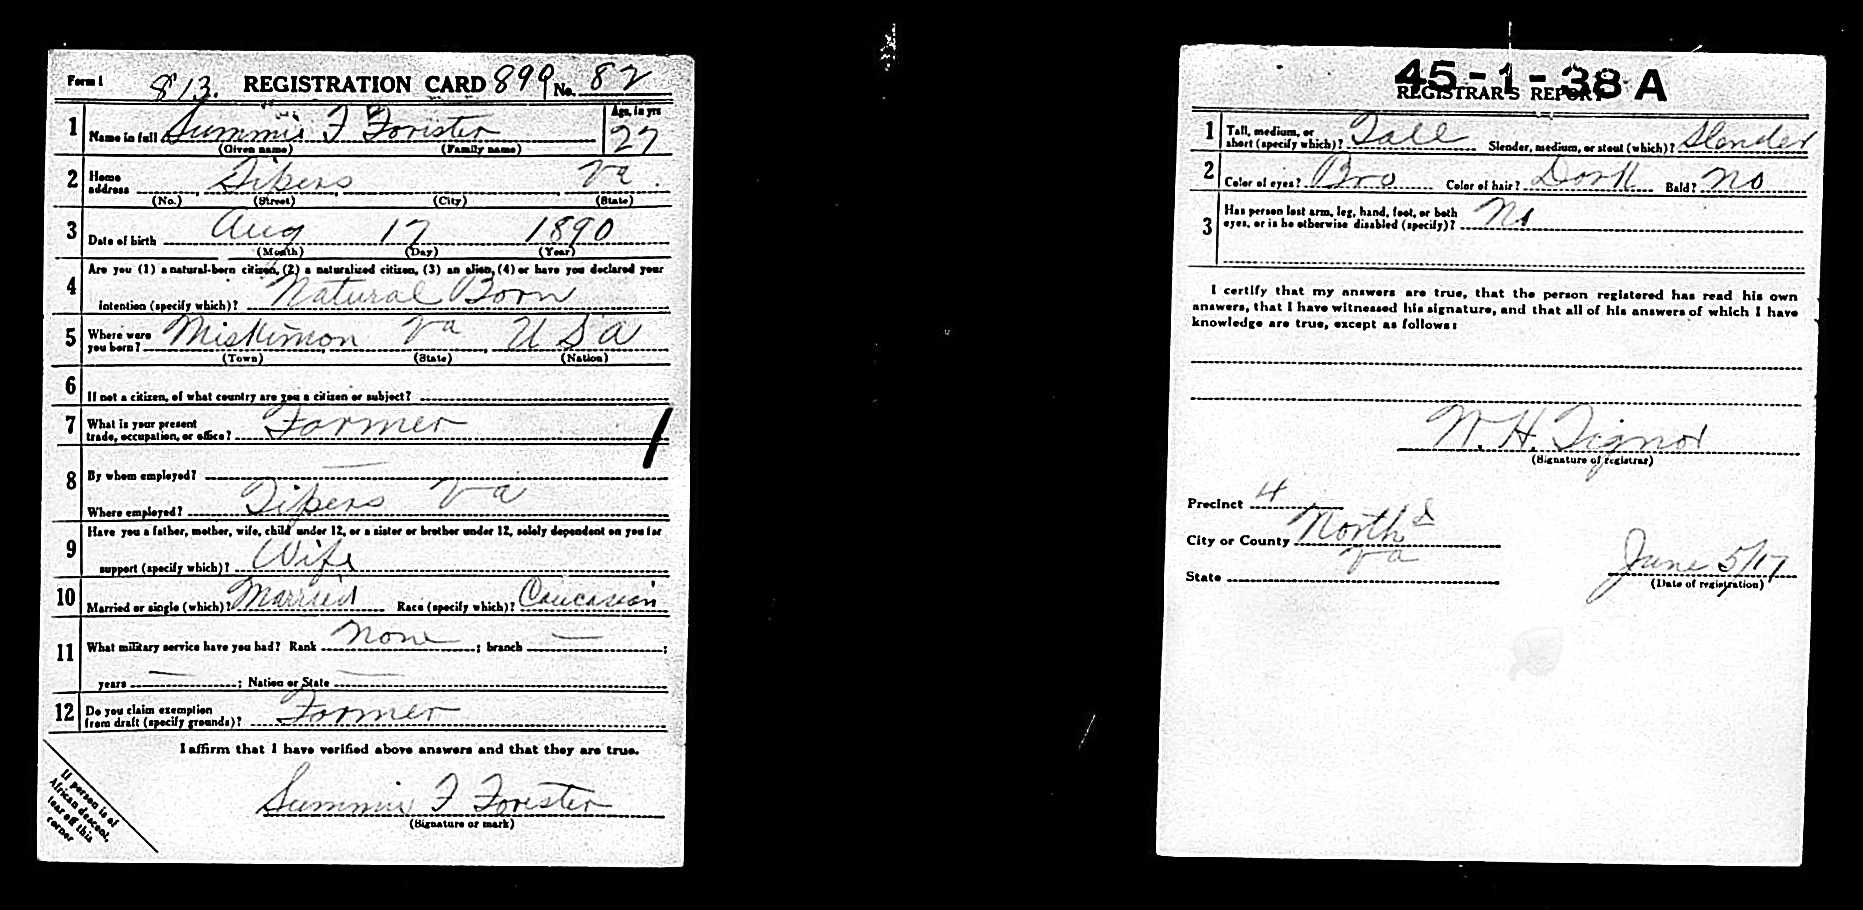 Form 1 813. REGISTRATION CARD 899 No. 82
1 Name in full Summie F Forister Age, in yrs 27
(Given name) (Family name)
2 Home address Tipers Va.
(No.) (Street) (City) (State)
3 Date of birth Aug 17 1890
(Month) (Day) (Year)
4 Are you (1) a natural-born citizen, (2) a naturalized citizen, (3) an alien, (4) or have you declared your
intention (specify which)? Natural Born
5 Where were you born? Miskimon Va USA
(Town) (State) (Nation)
6 If not a citizen, of what country are you a citizen or subject?
7 What is your present
trade, occupation, or office? Farmer
8 By whom employed? —
Where employed? Tipers Va
9 Have you a father, mother, wife, child under 12, or a sister or brother under 12, solely dependent on you for
support (specify which)? Wife
10 Married or single (which)? Married Race (specify which)? Caucasian
11 What military service have you had? Rank None ; branch — ;
years — ; Nation or State —
12 Do you claim exemption
from draft (specify grounds)? Farmer
I affirm that I have verified above answers and that they are true.
Summie F Forester
(Signature or mark)
If person is of
African descent,
tear off this
corner
45-1-38 A
REGISTRAR'S REPORT
1 Tall, medium, or
short (specify which)? Tall Slender, medium, or stout (which)? Slender
2 Color of eyes? Bro Color of hair? Dark Bald? No
3 Has person lost arm, leg, hand, foot, or both
eyes, or is he otherwise disabled (specify)? No
I certify that my answers are true, that the person registered has read his own
answers, that I have witnessed his signature, and that all of his answers of which I have
knowledge are true, except as follows:
W. H. Tignor
(Signature of registrar)
Precinct 4
City or County North'd
State Va
June 5/17
(Date of registration)